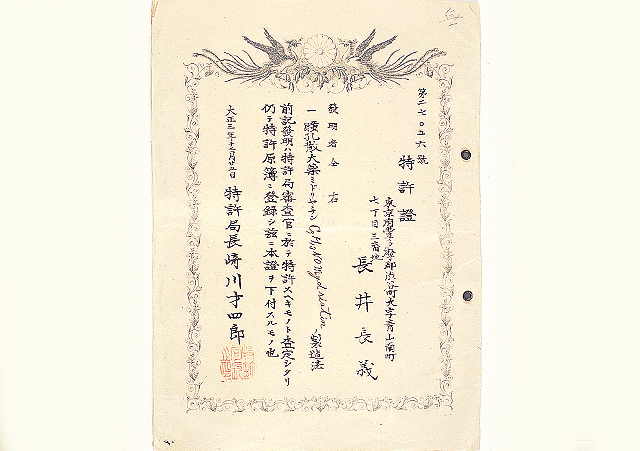 第二七〇五六號
特許證
東京府豐多摩郡渋谷町大字青山南町
七丁目三番地
長井長義
發明者仝右
一 瞳孔散大藥ミドリヤチン 製造法
前記發明ハ特許局審査官ニ於テ特許スヘキモノト査定シタリ
仍テ特許原簿ニ登録シ玆ニ本證ヲ下付スルモノ也
大正三年十二月廿五日
特許局長 崎川才四郎